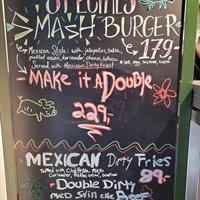 SPECIALS
MASH BURGER
Mexican Style: with jalapeños, salsa,
pickled onion, coriander, cheese, lettuce
Served with Mexican Dirty Fries!
179,-
MAKE it A DOUBLE
229,-
MEXICAN Dirty Fries
Topped with Chipotle Mayo
Coriander, Pickled onion,
89,-
Double Dirty
MED Svin elle